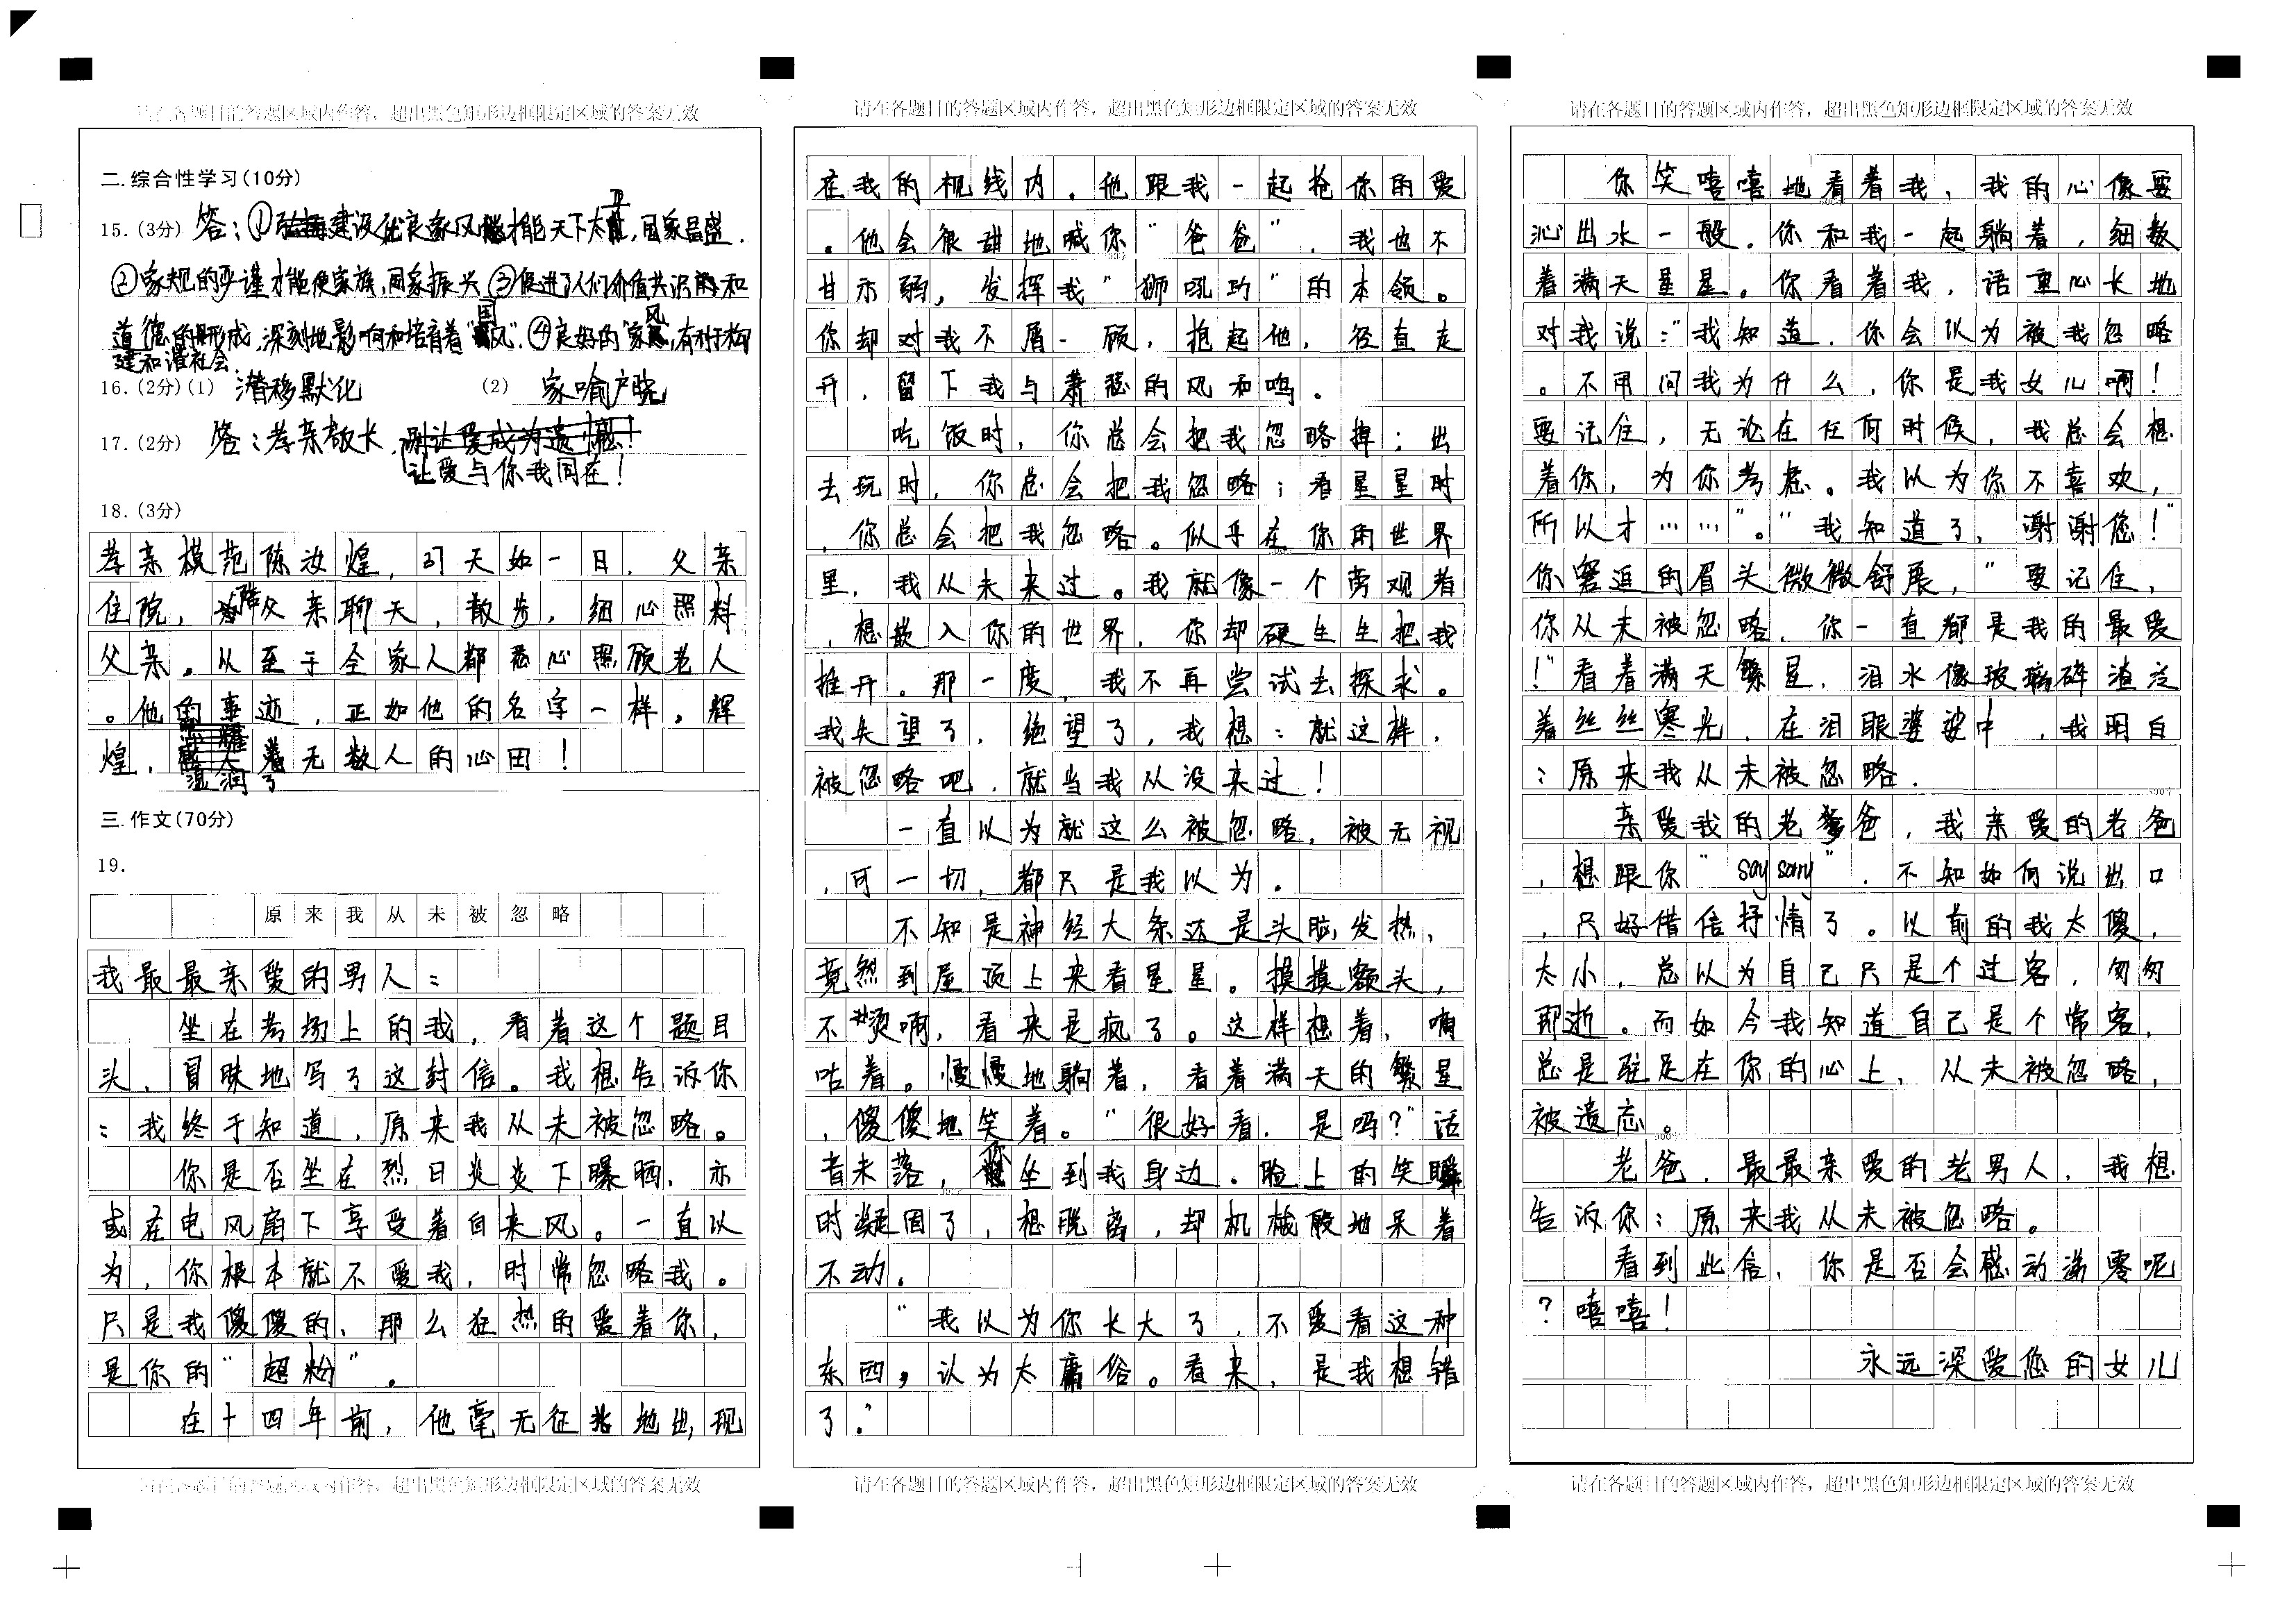 请在各题目的答题区域内作答，超出黑色矩形边框限定区域的答案无效
二.综合性学习(10分)
15.(3分) 答：①建设优良家风才能天下太平，国家昌盛.
②家规的严谨才能使家族,国家振兴 ③促进了人们价值共识和
道德的形成,深刻地影响和培育着"国风".④良好的"家风,有利于构
建和谐社会.
16.(2分)(1) 潜移默化 (2) 家喻户晓
17.(2分) 答：孝亲敬长,
让爱与你我同在！
18.(3分)
孝亲模范陈汝煌，37天如一日，父亲
住院，陪父亲聊天，散步，细心照料
父亲。从至于全家人都悉心照顾老人
。他的事迹，正如他的名字一样，辉
煌，温润了无数人的心田！
三.作文(70分)
19.
原来我从未被忽略
我最最亲爱的男人：
坐在考场上的我，看着这个题目
头，冒昧地写了这封信。我想告诉你
：我终于知道，原来我从未被忽略。
你是否坐在烈日炎炎下曝晒，亦
或在电风扇下享受着自来风。一直以
为，你根本就不爱我，时常忽略我。
只是我傻傻的、那么狂热的爱着你，
是你的"超粉"。
在十四年前，他毫无征兆地出现
请在各题目的答题区域内作答，超出黑色矩形边框限定区域的答案无效
请在各题目的答题区域内作答，超出黑色矩形边框限定区域的答案无效
在我的视线内，他跟我一起抢你的爱
。他会很甜地喊你"爸爸"，我也不
甘示弱，发挥我"狮吼功"的本领。
你却对我不屑一顾，抱起他，径直走
开，留下我与萧瑟的风和鸣。
吃饭时，你总会把我忽略掉；出
去玩时，你总会把我忽略；看星星时
，你总会把我忽略。似乎在你的世界
里，我从未来过。我就像一个旁观者
，想嵌入你的世界，你却硬生生把我
推开。那一度，我不再尝试去探求。
我失望了，绝望了，我想：就这样，
被忽略吧，就当我从没来过！
一直以为就这么被忽略，被无视
，可一切，都只是我以为。
不知是神经大条还是头脑发热，
竟然到屋顶上来看星星。摸摸额头，
不烫啊，看来是疯了。这样想着，嘀
咕着。慢慢地躺着，看着满天的繁星
，傻傻地笑着。"很好看，是吗？"话
音未落，你坐到我身边。脸上的笑瞬
时凝固了，想脱离，却机械般地呆着
不动。
"我以为你长大了，不爱看这种
东西，认为太庸俗。看来，是我想错
了。"
请在各题目的答题区域内作答，超出黑色矩形边框限定区域的答案无效
请在各题目的答题区域内作答，超出黑色矩形边框限定区域的答案无效
你笑嘻嘻地看着我，我的心像要
沁出水一般。你和我一起躺着，细数
着满天星星。你看着我，语重心长地
对我说："我知道，你会以为被我忽略
。不用问我为什么，你是我女儿啊！
要记住，无论在任何时候，我总会想
着你，为你考虑。我以为你不喜欢，
所以才……"。"我知道了，谢谢您！"
你窘迫的眉头微微舒展，"要记住，
你从未被忽略，你一直都是我的最爱
！"看着满天繁星，泪水像玻璃碎渣泛
着丝丝寒光，在泪眼婆娑中，我明白
：原来我从未被忽略.
亲爱我的老爹爸，我亲爱的老爸
，想跟你"say sorry"，不知如何说出口
，只好借信抒情了。以前的我太傻，
太小，总以为自己只是个过客，匆匆
即逝。而如今我知道自己是个常客，
总是驻足在你的心上，从未被忽略，
被遗忘。
老爸，最最亲爱的老男人，我想
告诉你：原来我从未被忽略。
看到此信，你是否会感动涕零呢
？嘻嘻！
永远深爱您的女儿
请在各题目的答题区域内作答，超出黑色矩形边框限定区域的答案无效